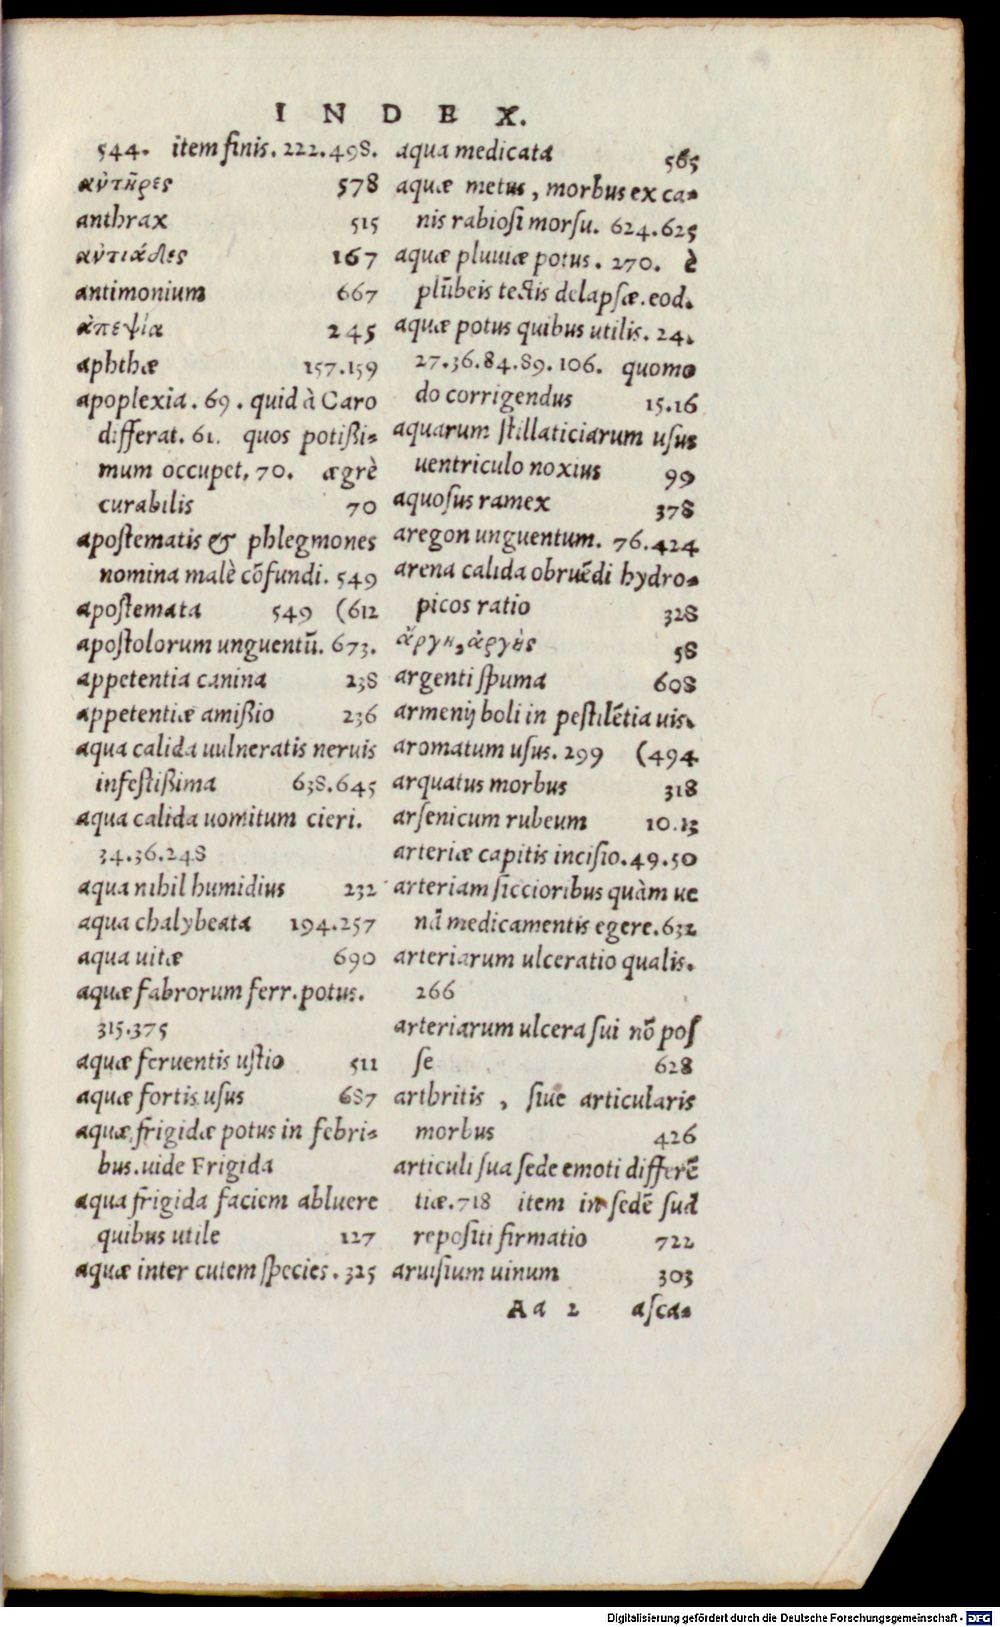 INDEX.
544. item finis. 222. 498.
ἀντῆρες 578
anthrax 515
ἀντιάδες 167
antimonium 667
ἀπεψία 245
aphthæ 157.159
apoplexia. 69. quid à Caro
differat. 61. quos potißi=
mum occupet, 70. ægrè
curabilis 70
apostematis & phlegmones
nomina malè cõfundi. 549
apostemata 549 (612
apostolorum unguentũ. 673.
appetentia canina 238
appetentiæ amißio 236
aqua calida uulneratis neruis
infestißima 638.645
aqua calida uomitum cieri.
34.36.248
aqua nihil humidius 232
aqua chalybeata 194.257
aqua uitæ 690
aquæ fabrorum ferr. potus.
315.375
aquæ feruentis ustio 511
aquæ fortis usus 687
aquæ frigidæ potus in febri=
bus. uide Frigida
aqua frigida faciem abluere
quibus utile 127
aquæ inter cutem species. 325
aqua medicata 565
aquæ metus, morbus ex ca=
nis rabiosi morsu. 624.625
aquæ pluuiæ potus. 270. è
plũbeis tectis delapsæ. eod.
aquæ potus quibus utilis. 24.
27.36.84.89.106. quomo
do corrigendus 15.16
aquarum stillaticiarum usus
uentriculo noxius 99
aquosus ramex 378
aregon unguentum. 76.424
arena calida obruẽdi hydro=
picos ratio 328
ἄργη, ἀργὴς 58
argenti spuma 608
armenij boli in pestilẽtia uis.
aromatum usus. 299 (494
arquatus morbus 318
arsenicum rubeum 10.13
arteriæ capitis incisio. 49.50
arteriam siccioribus quàm ue
nã medicamentis egere. 632
arteriarum ulceratio qualis.
266
arteriarum ulcera sui nõ pos
se 628
arthritis, siue articularis
morbus 426
articuli sua sede emoti differẽ
tiæ. 718 item in sedẽ suã
repositi firmatio 722
aruisium uinum 303
Aa 2 asca=
Digitalisierung gefördert durch die Deutsche Forschungsgemeinschaft - DFG